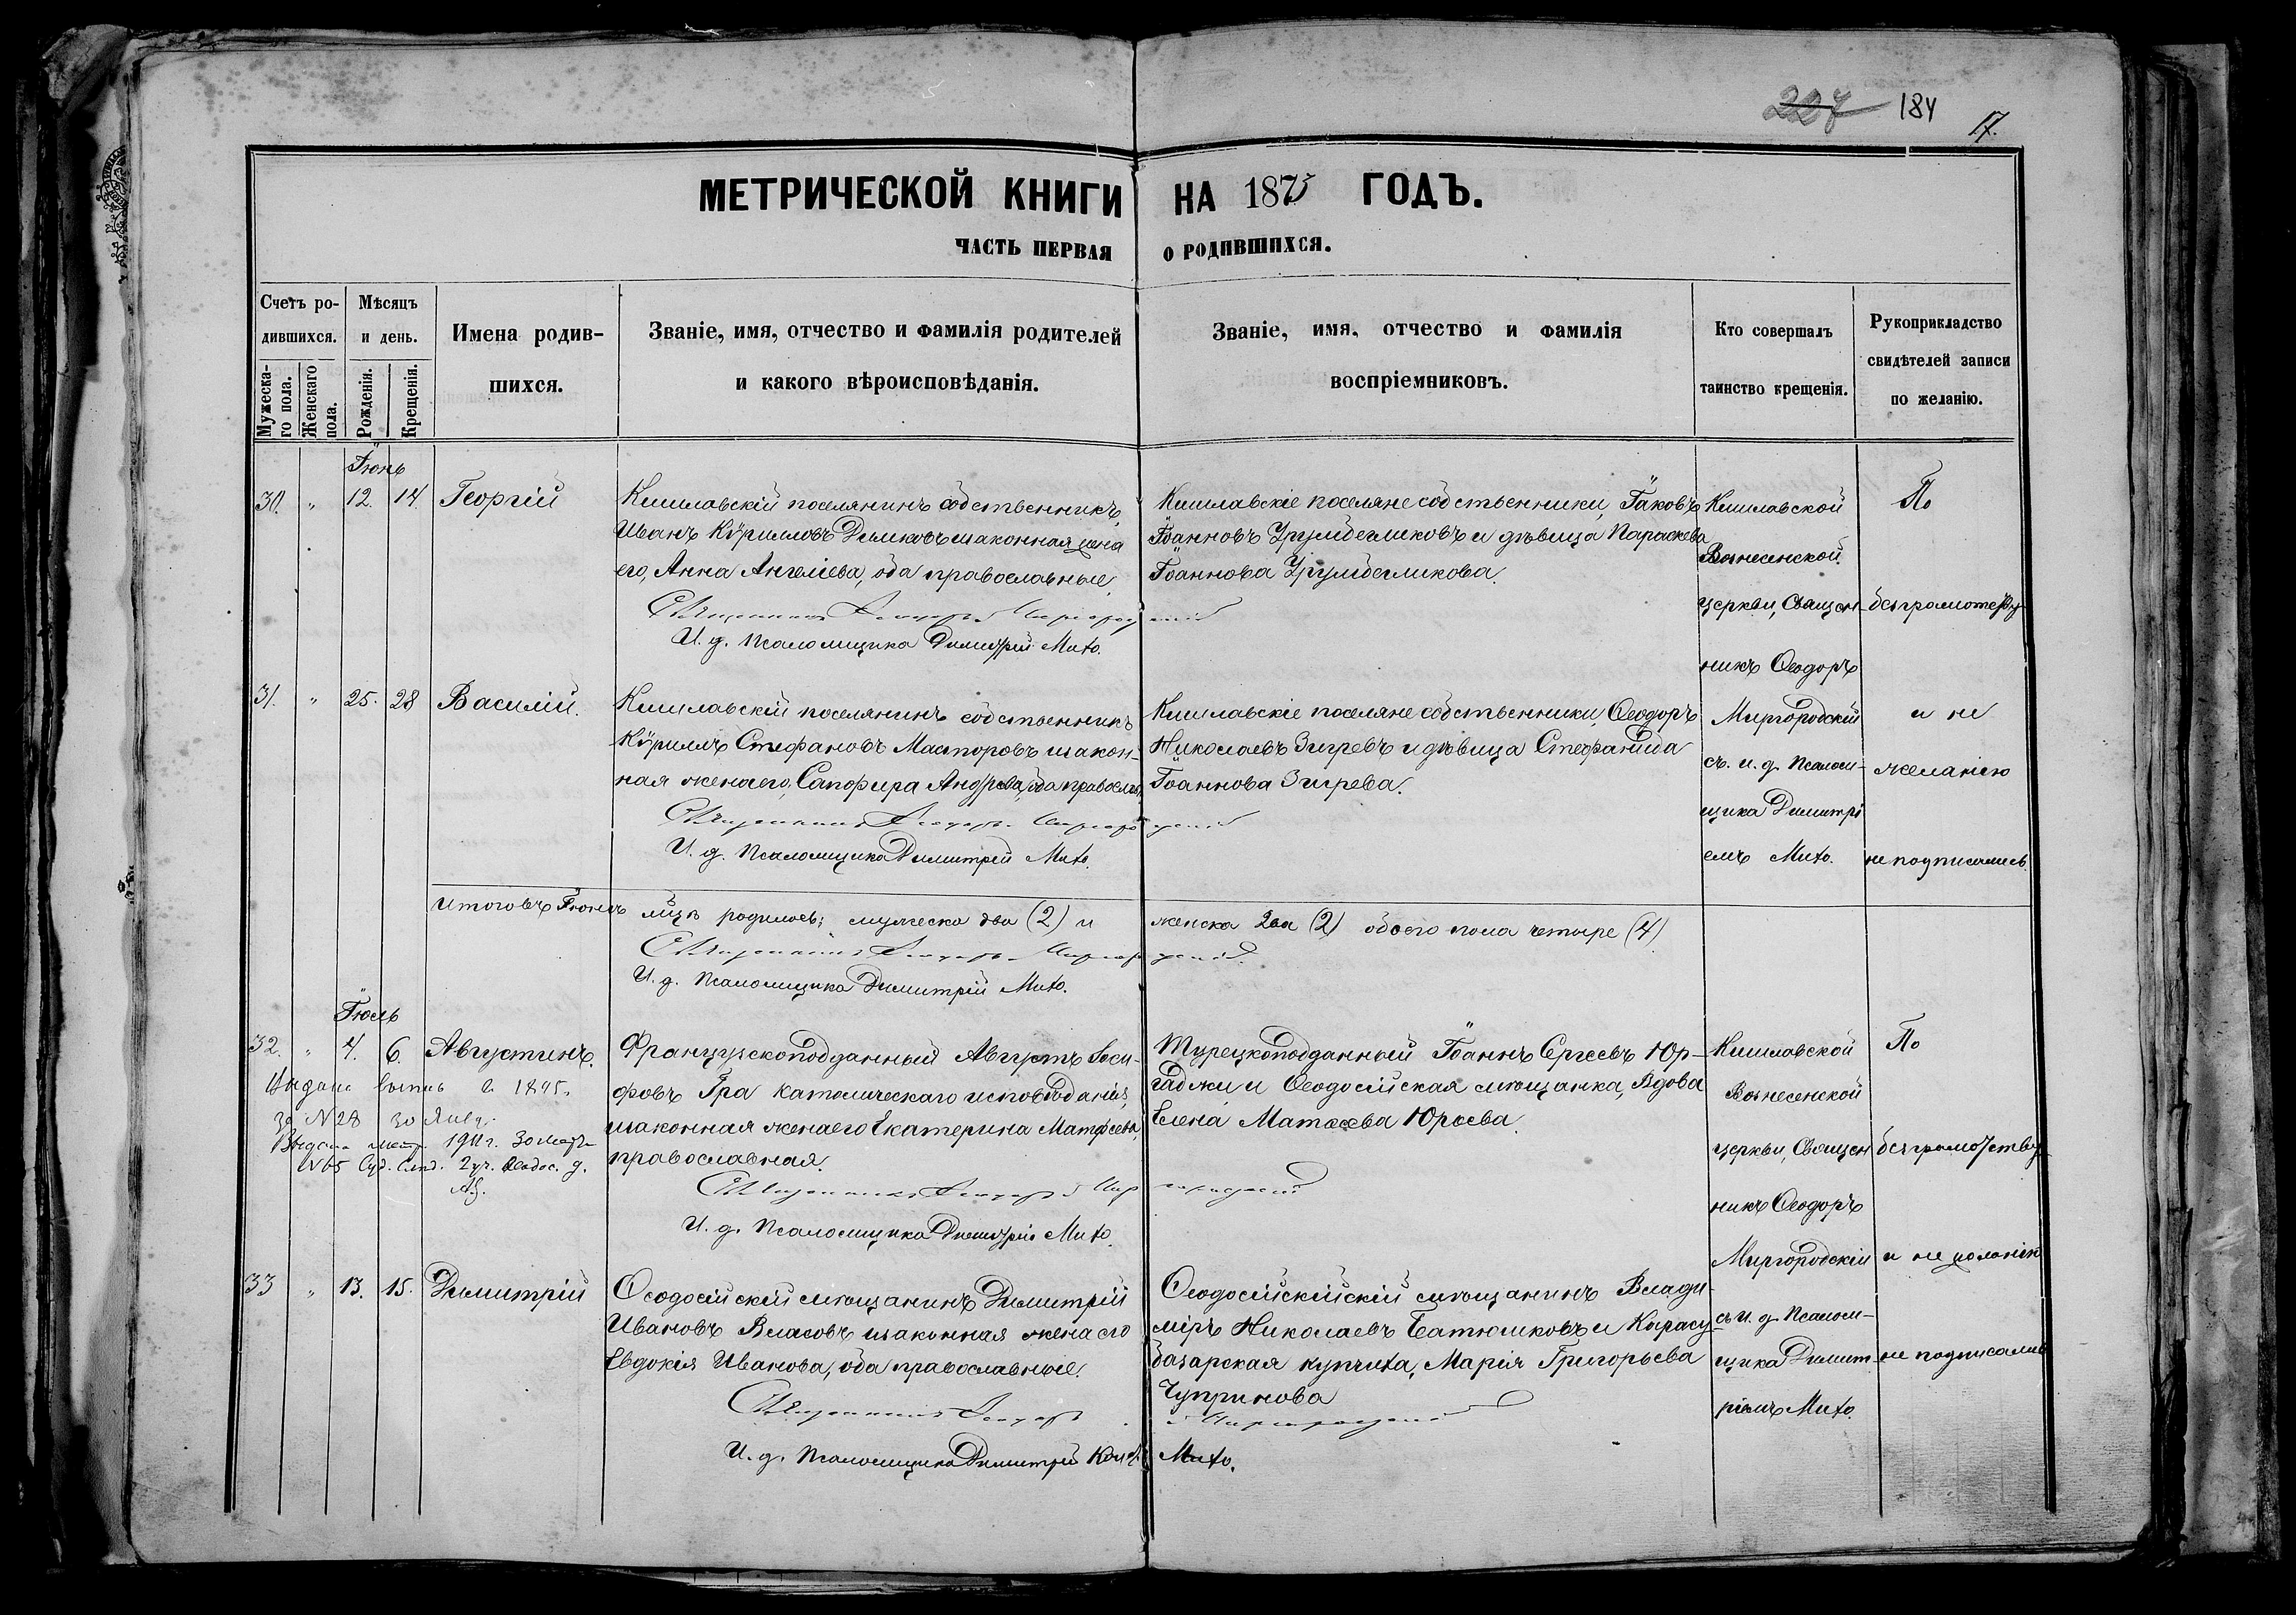 227 184 17.
МЕТРИЧЕСКОЙ КНИГИ НА 1875 ГОДЪ.
ЧАСТЬ ПЕРВАЯ О РОДИВШИХСЯ.
Счетъ родившихся.
Мужескаго пола.
Женскаго пола.
Мѣсяцъ и день.
Рожденія.
Крещенія.
Имена родившихся.
Званіе, имя, отчество и фамилія родителей
и какого вѣроисповѣданія.
Званіе, имя, отчество и фамилія
воспріемниковъ.
Кто совершалъ
таинство крещенія.
Рукоприкладство
свидѣтелей записи
по желанію.
Іюнь
30. " 12. 14. Георгій
Кишлавскій поселянинъ собственникъ,
Иванъ Кѵрилловъ Димковъ и законная жена
его, Анна Ангеліева, оба православные.
Священникъ Ѳеодоръ Миргородскій
И. д. Псаломщика Димитрій Мито.
Кишлавскіе поселяне собственники, Іаковъ
Іоанновъ Урумбегликовъ и дѣвица Параскева
Іоаннова Урумбегликова.
Кишлавской
Вознесенской
церкви, Священ-
никъ Ѳеодоръ
Миргородскій
съ и. д. Псалом-
щика Димитрі
емъ Мито.
По
безграмотству
и не
желанію
не подписались.
31. " 25. 28 Василій.
Кишлавскій поселянинъ собственникъ
Кѵриллъ Стефановъ Масторовъ и закон-
ная жена его, Сапфира Андреева, оба правосл.
Священникъ Ѳеодоръ Миргородскій
И. д. Псаломщика Димитрій Мито.
Кишлавскіе поселяне собственники, Ѳеодоръ
Николаевъ Зигревъ и дѣвица Стефанида
Іоаннова Зигрева.
Итого въ Іюнѣ мѣцѣ родилось; мужеска два (2) и женска два (2) обоего пола четыре (4)
Священникъ Ѳеодоръ Миргородскій.
И. д. Псаломщика Димитрій Мито.
Іюль
32. " 4. 6. Августинъ.
Выдана выпись в 1895.
за N 28 30 Янв.
Выдана метр. 1911 г. 30
N 65 Суд. Слѣд. 2 уч. Ѳеодос.
Французскоподданный Августъ Іоси-
фовъ Гра католическаго исповѣданія,
и законная жена его Екатерина Матфеева,
православная.
Священникъ Ѳеодоръ Миргородскій
И. д. Псаломщика Димитрій Мито.
Турецкоподданный Іоаннъ Сергеевъ Юр-
гаджи и Ѳеодосійская мѣщанка, Вдова
Елена Матѳеева Юрьева.
Кишлавской
Вознесенской
церкви, Священ
никъ Ѳеодоръ
Миргородскій
съ и. д. Псалом-
щика Димит-
ріемъ Мито.
По
безграмотству
и не желанію
не подписались
33 " 13. 15. Димитрій
Ѳеодосійскій мѣщанинъ Димитрій
Ивановъ Власовъ и законная жена его
Евдокія Иванова, оба православные.
Священникъ Ѳеодоръ Миргородскій
И. д. Псаломщика Димитрій Мито.
Ѳеодосійскійскій мѣщанинъ Влади-
міръ Николаевъ Батюшковъ и Карасу-
базарская купчиха, Марія Григорьева
Чупринова